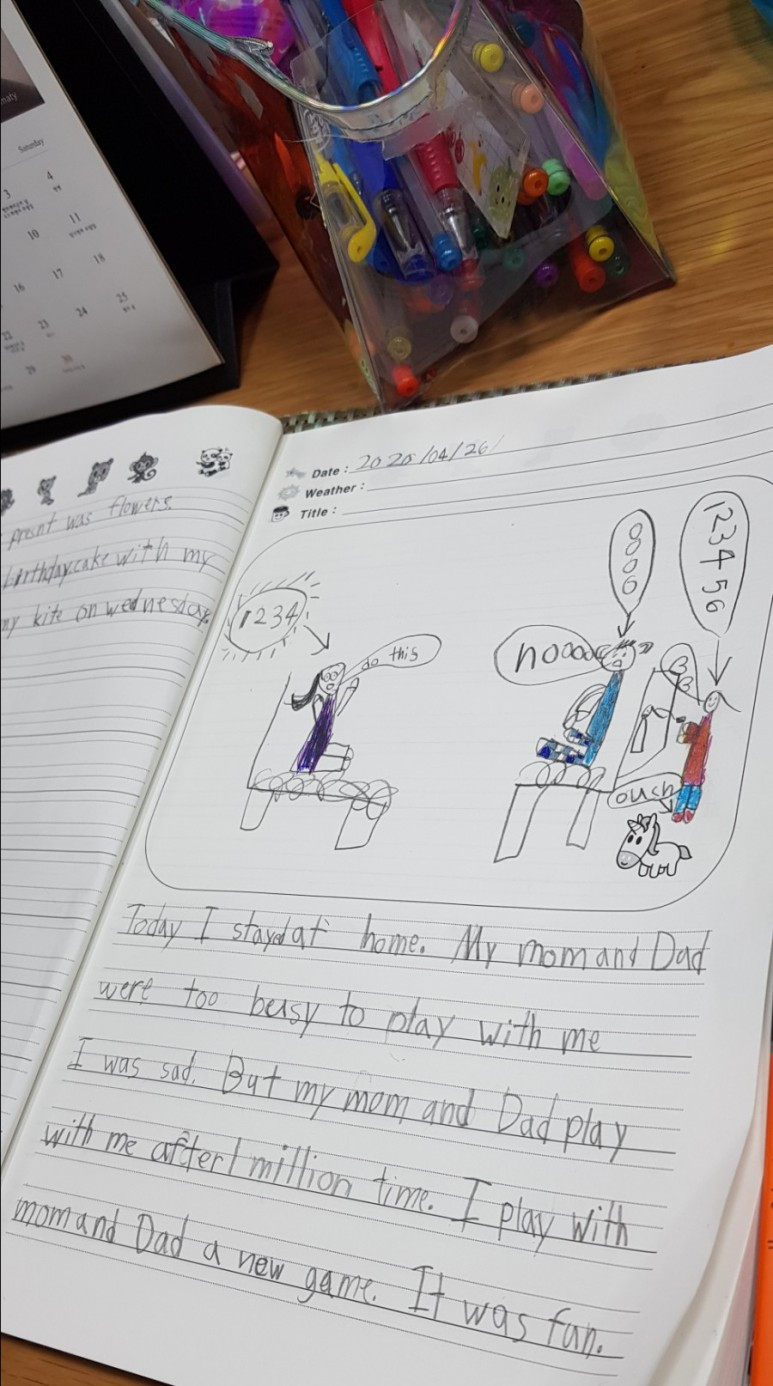 Saturday
3
4
10
11
16
17
18
22
23
24
25
29
30
present was flowers.
birthday cake with my
my kite on wednesday
Date : 2020/04/26/
Weather :
Title :
1234
do this
0000
123456
nooooo
ouch
Today I stayd at home. My mom and Dad
were too beasy to play with me
I was sad. But my mom and Dad play
with me after 1 million time. I play with
mom and Dad a new game. It was fun.